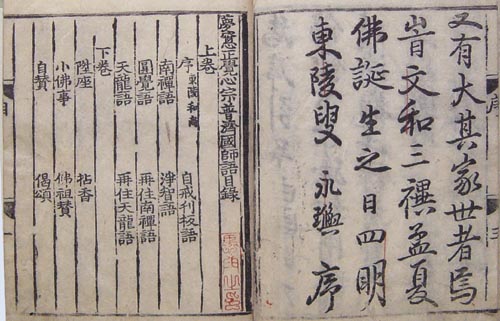 又有大其家世者焉
旹文和三禩孟夏
佛誕生之日四明
東陵叟 永璵 序
夢窓正覺心宗普濟國師語目錄
上卷
序 東陵和尚 自戒刊板語
南禪語 淨智語
圓覺語 再住南禪語
天龍語 再住天龍語
下卷
陞座 拈香
小佛事 佛祖賛
自賛 偈頌